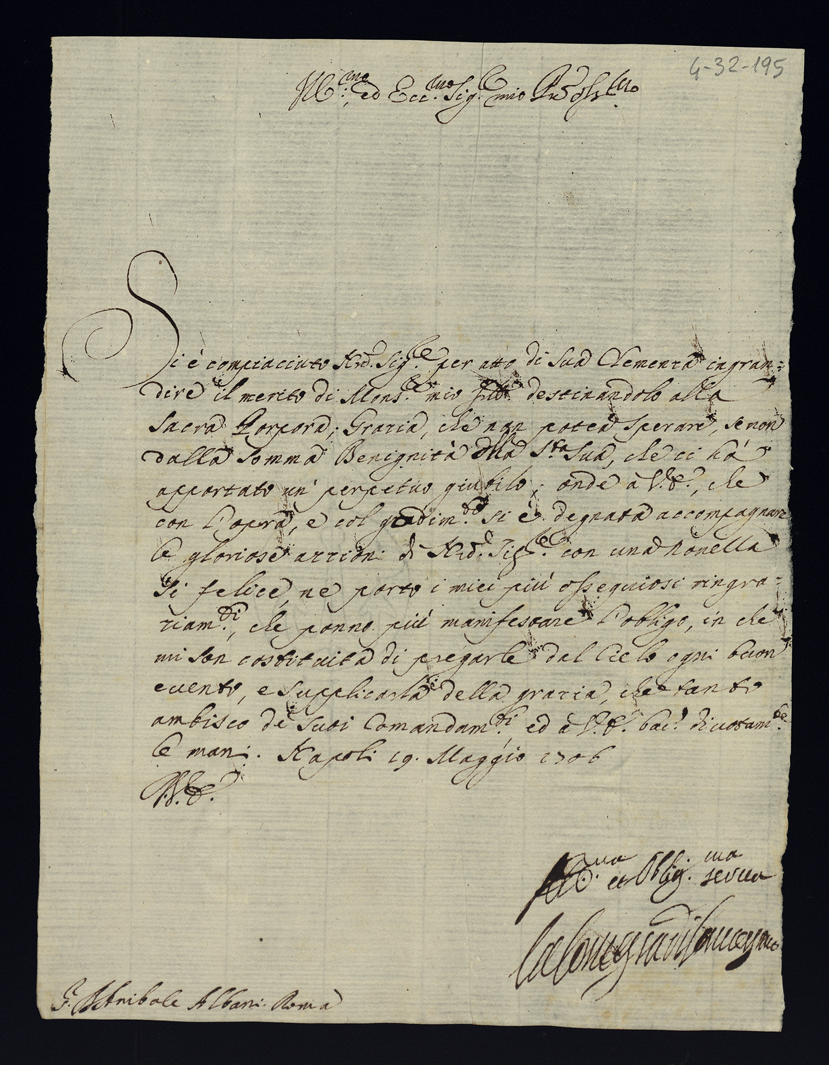 4-32-195
Ill.mo, ed Ecc.mo Sig.re mio P.rone Oss.mo
Si è compiaciuto N.ro Sig.re per atto di Sua Clemenza ingran=
dire il merito di Mons.re mio fri̅o destinandolo alla
Sacra Porpora; Grazia, che non potea sperare, se non
dalla Somma Benignità della S.tà Sua, che ci há
apportato un' perpetuo giubilo; onde a V.E., che
con l'opera, e col gradim.to si è degnata accompagnare
le gloriose azzioni di N.ro Sig.re con una novella
sì felice, ne porto i miei più ossequiosi ringra=
ziam.ti, che ponno più manifestare l'obligo, in che
mi son costituita di pregarle dal Cielo ogni buon
evento, e supplicarla della grazia, che tanto
ambisco de' suoi Comandam.ti, ed a V.E. bacio divotam.te
le mani. Napoli 19. Maggio 1706
D. V. E.
et Oblig.ma serva
la
D. Anibale Albani Roma